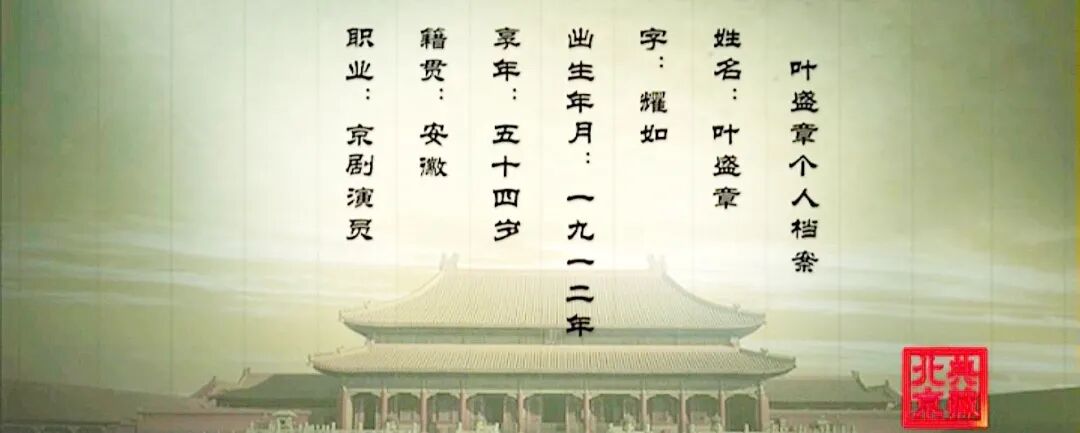 叶盛章个人档案
姓名：叶盛章
字：耀如
出生年月：一九一二年
享年：五十四岁
籍贯：安徽
职业：京剧演员
典藏
北京